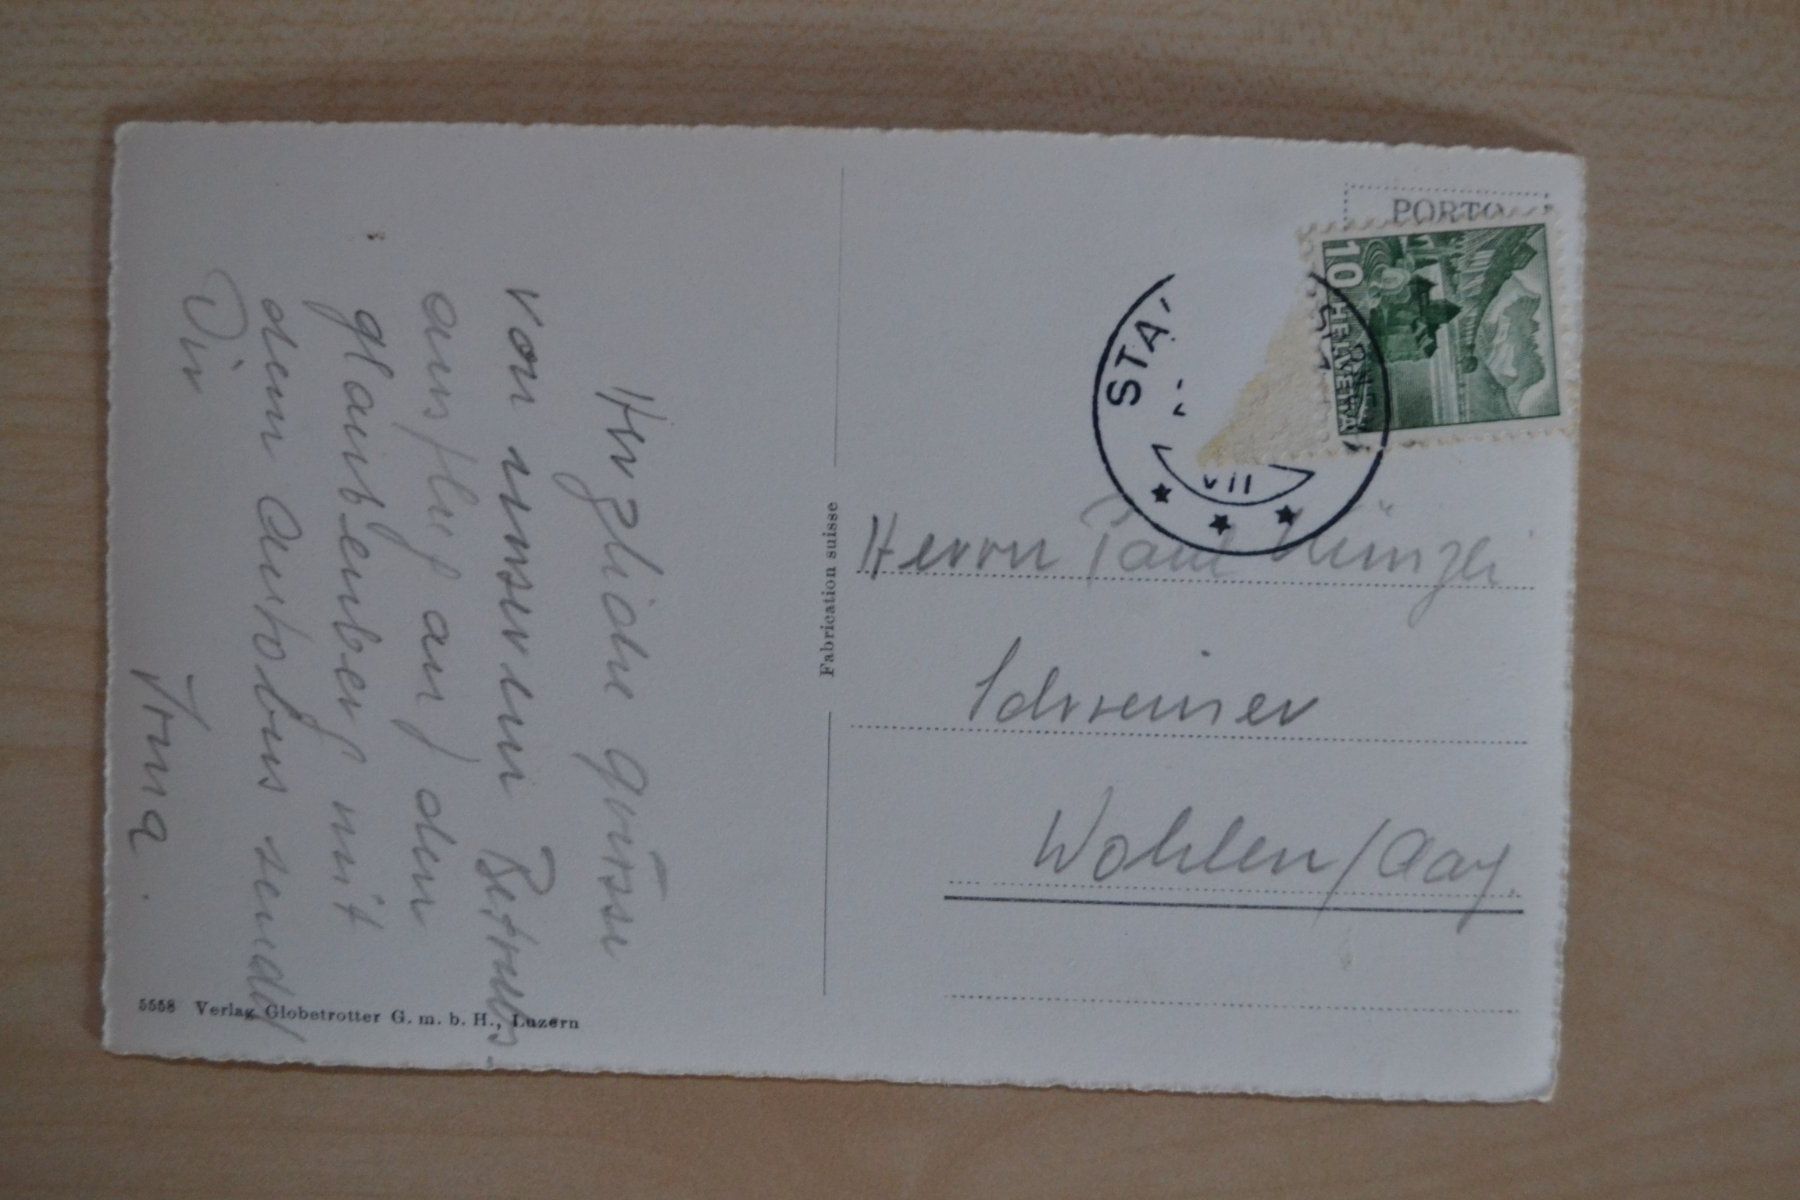 Herzliche grüsse
von unserem Betriebs-
ausflug auf den
glaubenberg mit
dem Autobus sendet
Dir
Irma.
5558 Verlag Globetrotter G. m. b. H., Luzern
Fabrication suisse
PORTO
10 HELVETIA
STA
VII
Herrn Paul Künzli
Schreiner
Wohlen/Aarg.